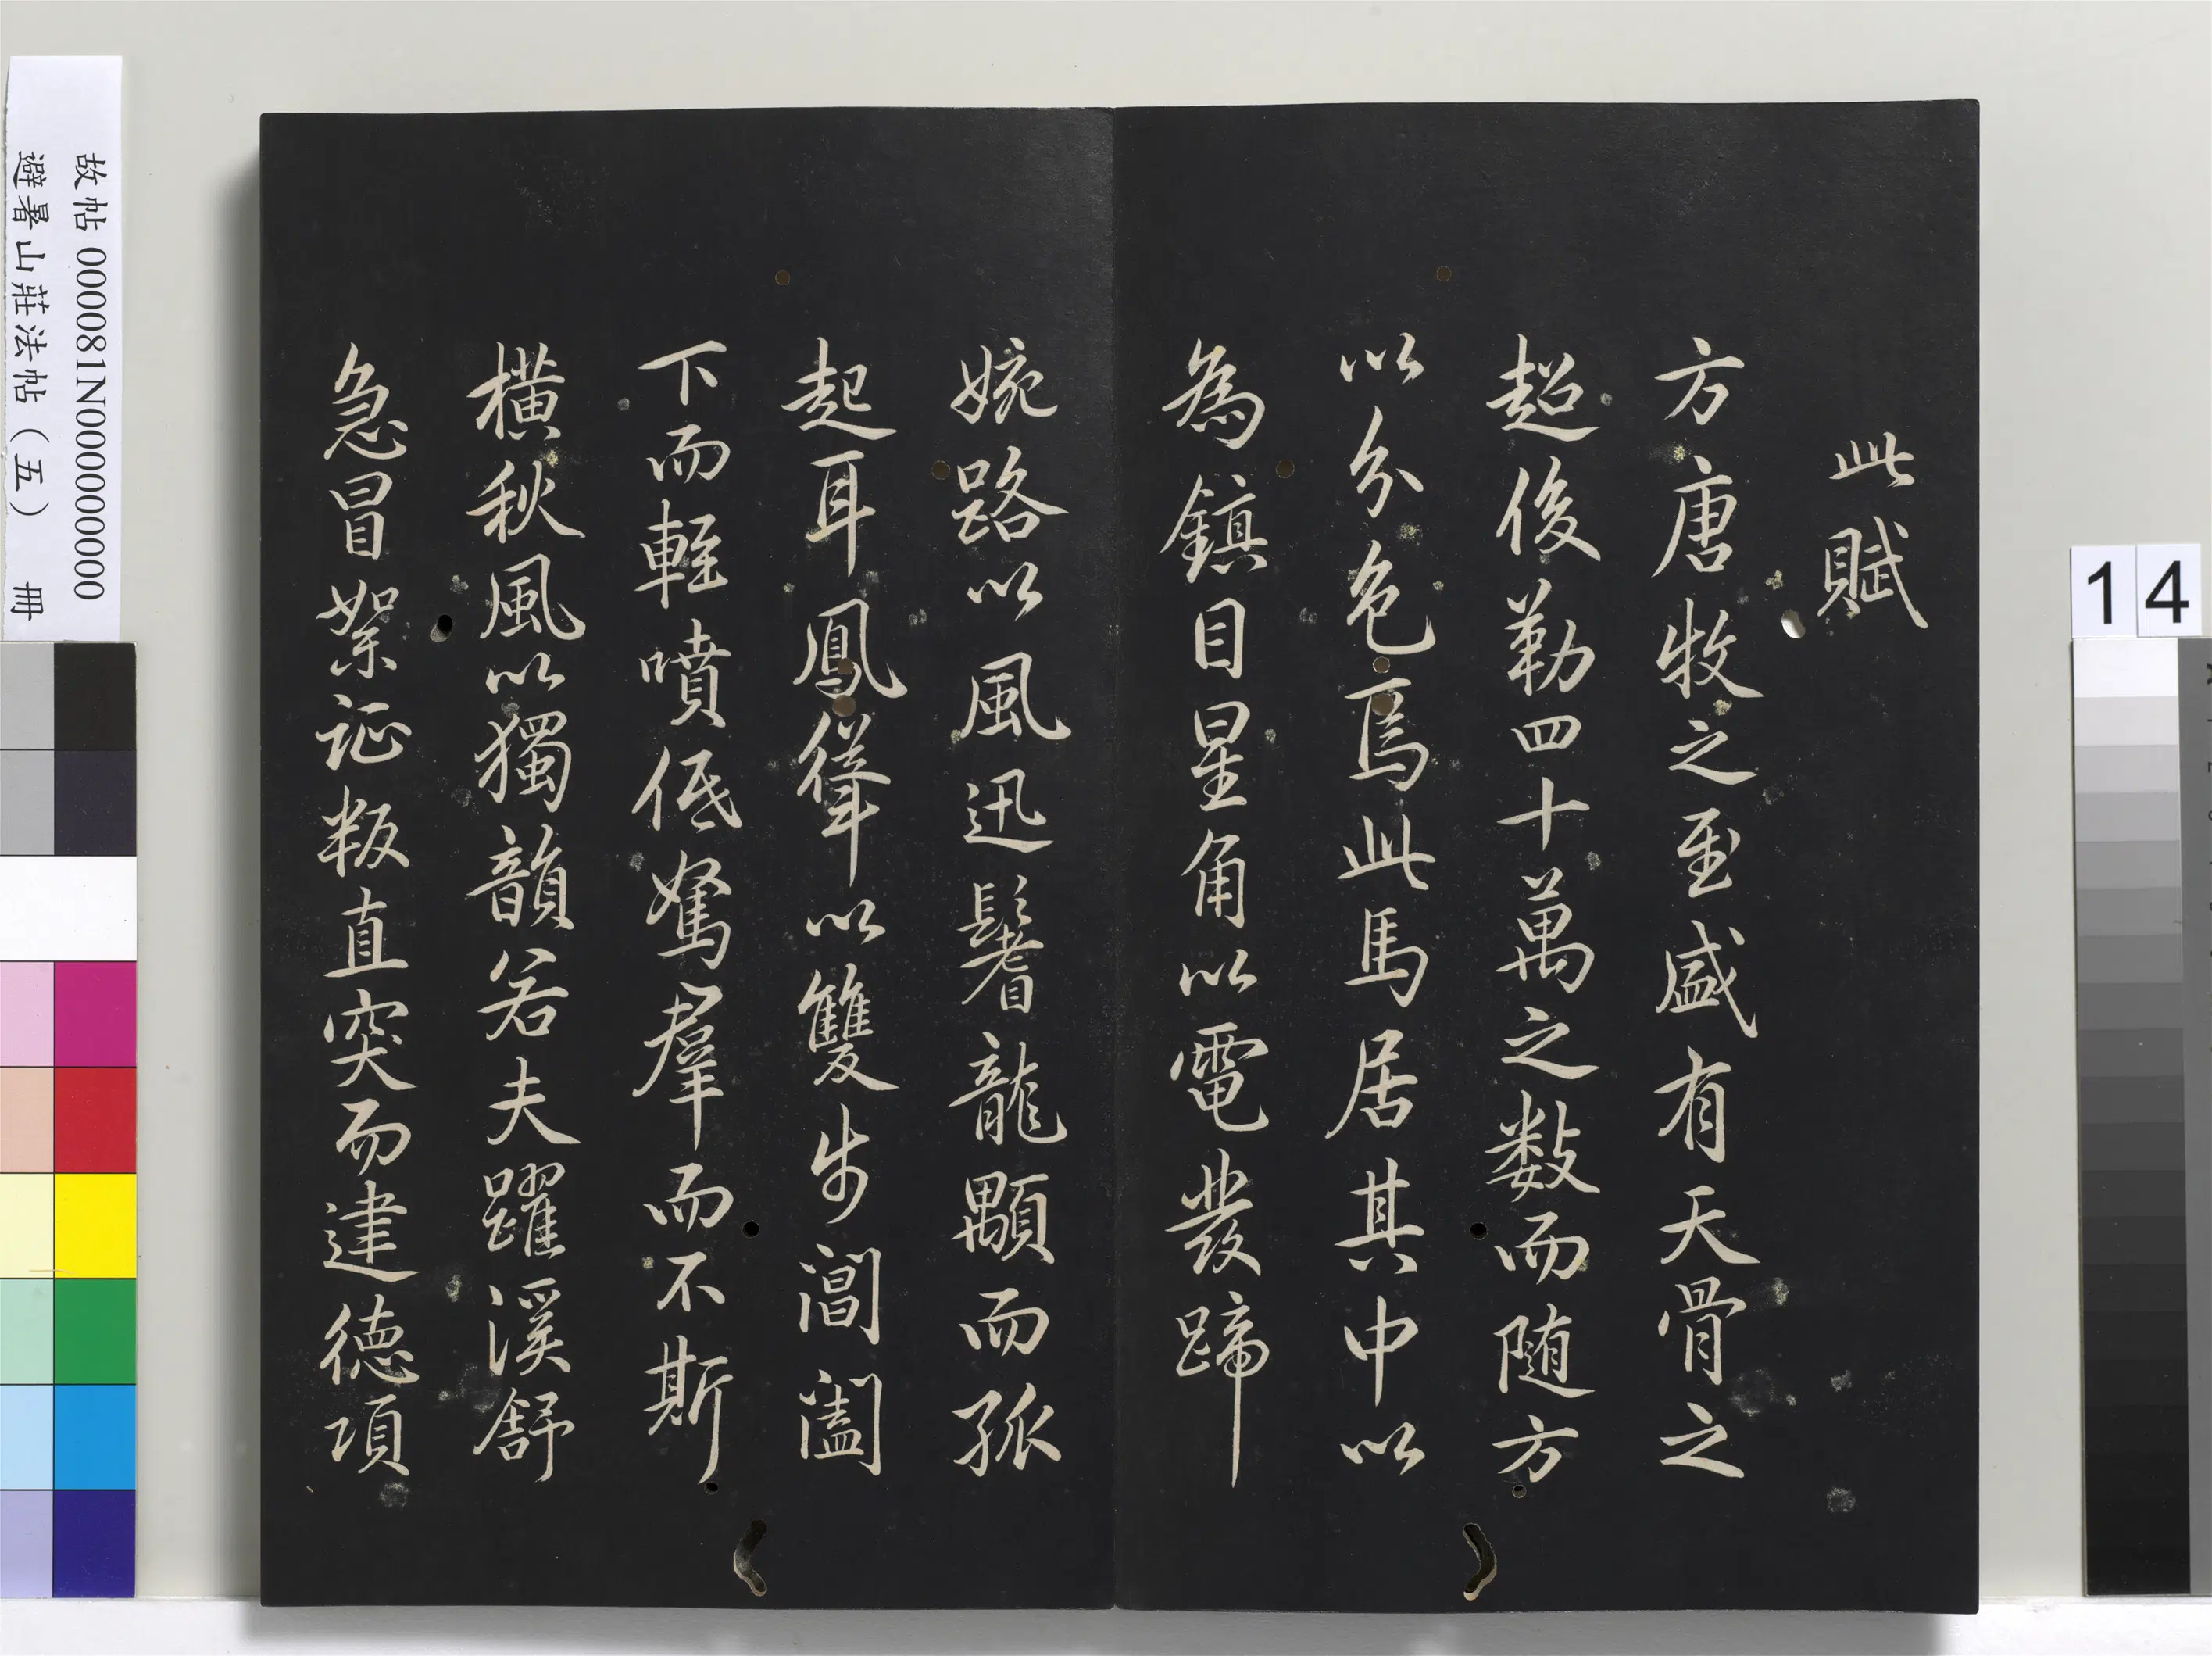 此賦
方唐牧之至盛有天骨之
超俊勒四十萬之數而隨方
以分色焉此馬居其中以
為鎮目星角以電發蹄
婉路以風迅鬐龍顒而孤
起耳鳳聳以雙步閶闔
下而輕噴低駑群而不斯
橫秋風以獨韻若夫躍溪舒
急冒絮征叛直突而建德項
故帖 000081N000000000
避暑山莊法帖(五) 冊
14